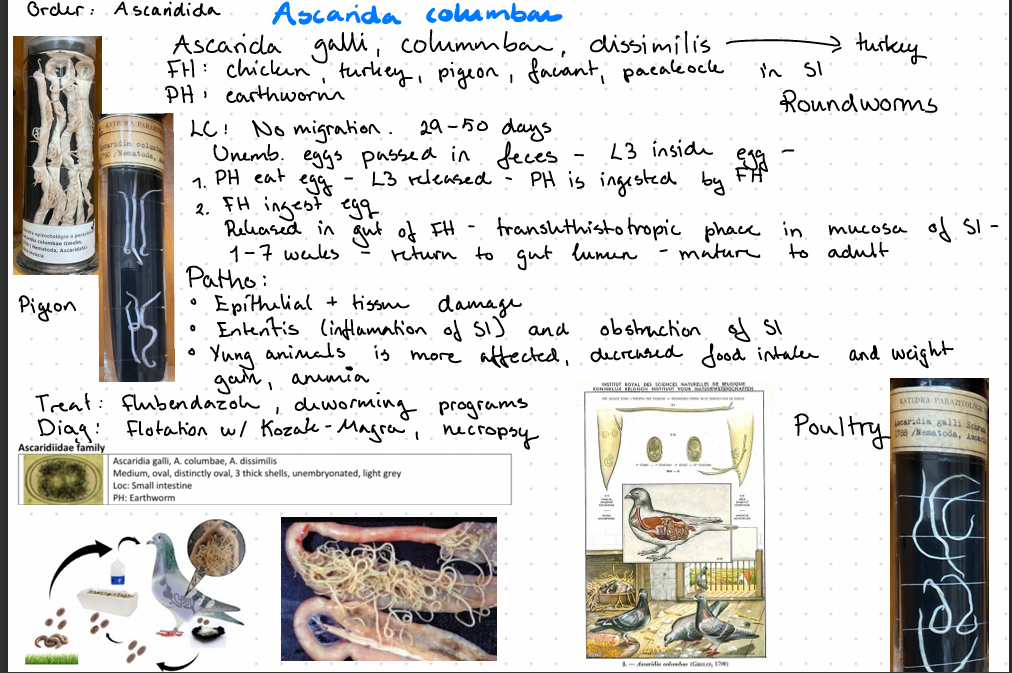 Order: Ascaridida
Ascarida columbae
Ascarida galli, colummbae, dissimilis → turkey
FH: chicken, turkey, pigeon, facant, pacakock in SI
PH: earthworm
Roundworms
LC: No migration. 29-50 days
Unemb. eggs passed in feces - L3 inside egg -
1. PH eat egg - L3 released - PH is ingested by FH
2. FH ingest egg
Released in gut of FH - transhthistotropic phace in mucosa of SI -
1-7 weeks - return to gut lumen - mature to adult
Patho:
• Epithelial + tissue damage
• Enteritis (inflamation of SI) and obstruction of SI
• Yung animals is more affected, decreased food intake and weight
gain, anemia
Pigeon
Treat: flubendazole, deworming programs
Diag: Flotation w/ Kozak-Magra, necropsy
Poultry
Ascaridiidae family
Ascaridia galli, A. columbae, A. dissimilis
Medium, oval, distinctly oval, 3 thick shells, unembryonated, light grey
Loc: Small intestine
PH: Earthworm
KATEDRA PARAZIT
/Nematoda,
INSTITUT ROYAL DES SCIENCES NATURELLES DE BELGIQUE
KONINKLIJK BELGISCH INSTITUUT VOOR NATUURWETENSCHAPPEN
KATEDRA PARAZITOLÓG
Ascaridia galli Schrank
1788 /Nematoda, Ascar
1. — Ascaridia columbae (GMELIN, 1790)